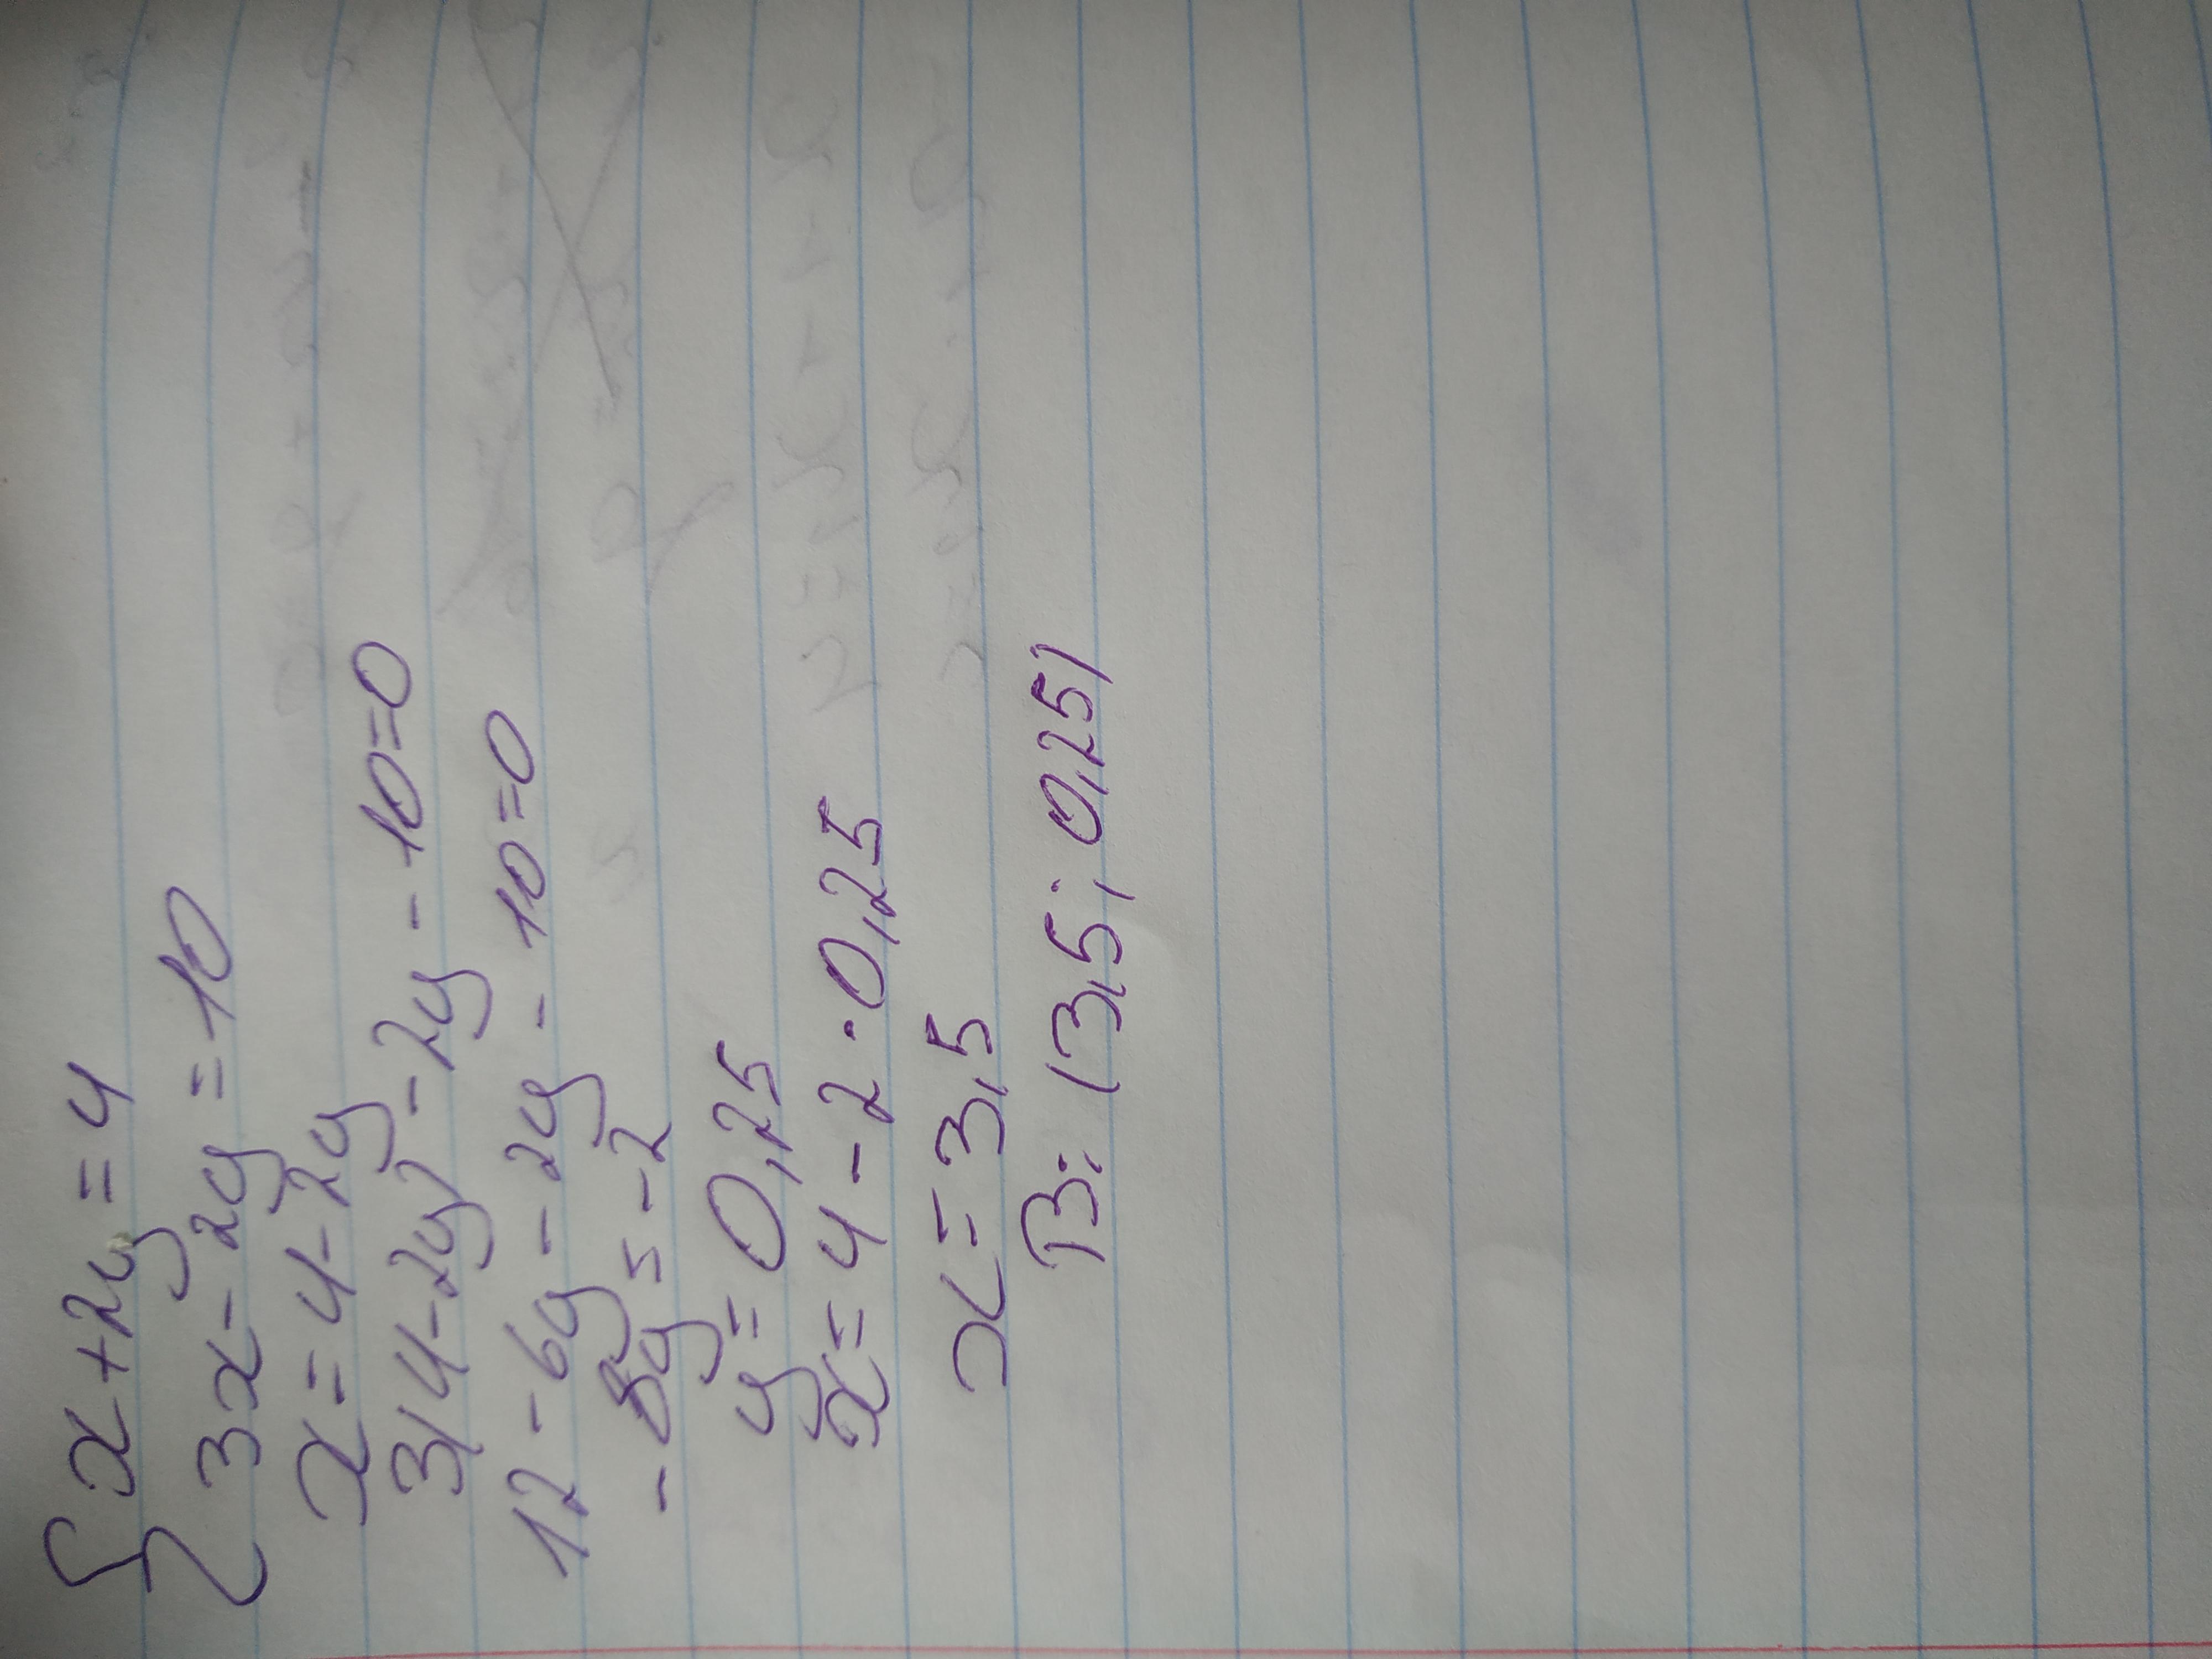 { x+2y=4
3x-2y=10
x=4-2y
3(4-2y)-2y-10=0
12-6y-2y-10=0
-8y=-2
y=0,25
x=4-2·0,25
x=3,5
В: (3,5; 0,25)